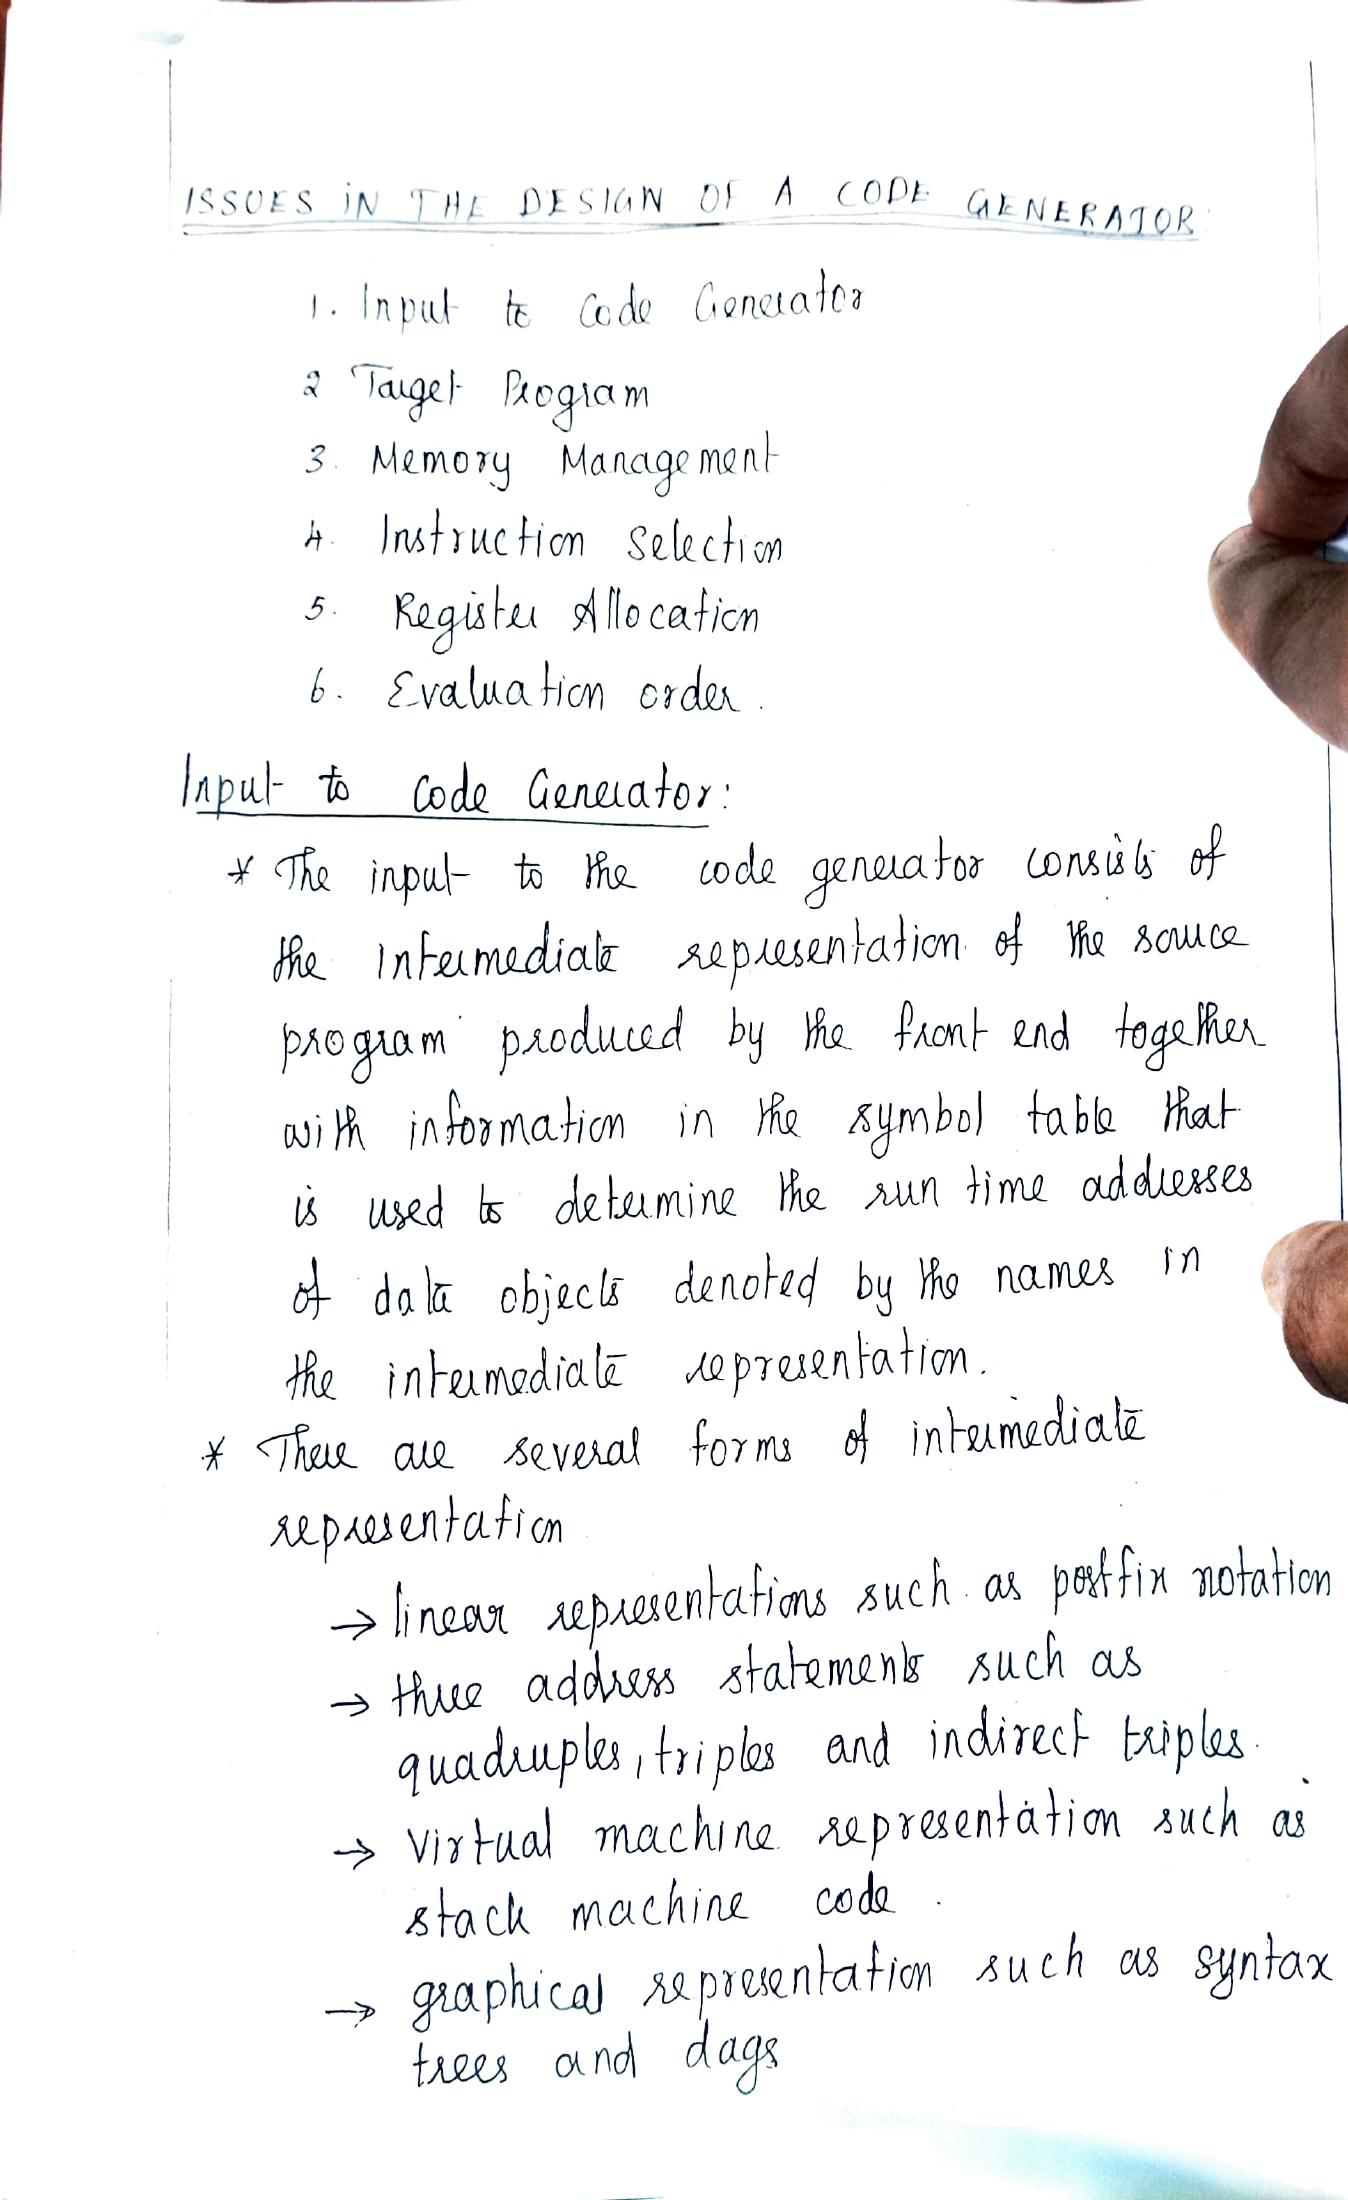 ISSUES IN THE DESIGN OF A CODE GENERATOR:
1. Input to Code Generator
2 Target Program
3. Memory Management
4. Instruction Selection
5. Register Allocation
6. Evaluation order.
Input to Code Generator:
* The input to the code generator consists of
the intermediate representation of the source
program produced by the front end together
with information in the symbol table that
is used to determine the run time addresses
of data objects denoted by the names in
the intermediate representation.
* There are several forms of intermediate
representation
→ linear representations such as postfix notation
→ three address statements such as
quadruples, triples and indirect triples.
→ Virtual machine representation such as
stack machine code.
→ graphical representation such as syntax
trees and dags